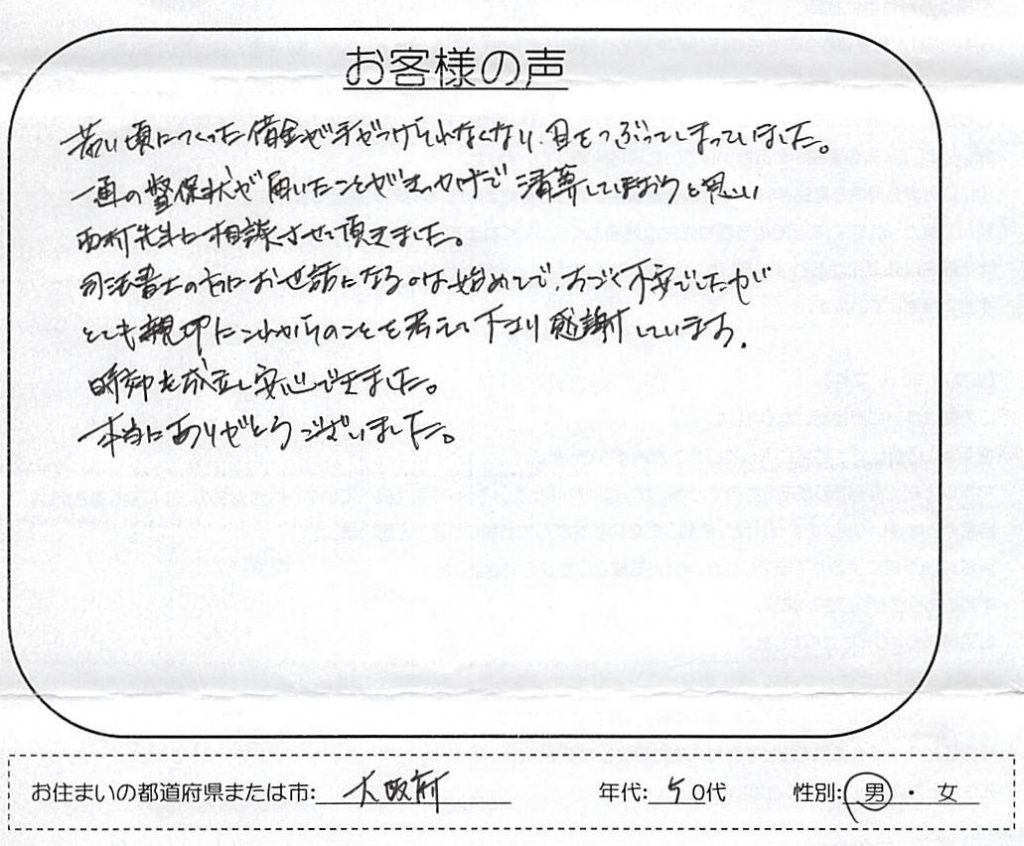 お客様の声
若い頃につくった借金ぜ手がつけられなくなり、目をつぶってしまっていました。
一通の督促状が届いたことがきっかけで清算してしまおうと思い
西村先生に相談させて頂きました。
司法書士の方にお世話になるのは始めてで、すごく不安でしたが
とても親切にこれからのことを考えて下さり感謝しています。
時効も成立し安心できました。
本当にありがとうございました。
お住まいの都道府県または市: 大阪府 年代: 50代 性別: 男 ・ 女